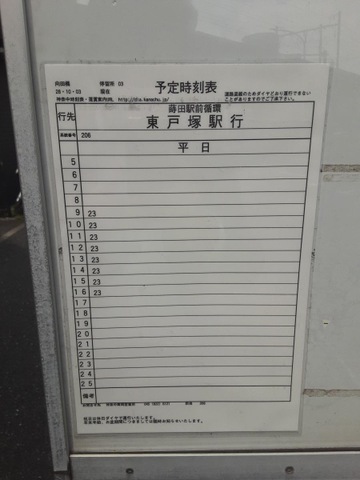 向田橋 停留所 03 予定時刻表
26・10・03
http://dia.kanachu.jp/
道路混雑のためダイヤどおり運行できない
ことがありますのでご了承下さい。
蒔田駅前循環
行先 東戸塚駅行
系統番号 206
平日
5
6
7
8
9 23
10 23
11 23
12 23
13 23
14 23
15 23
16 23
17
18
19
20
21
22
23
24
25
備考